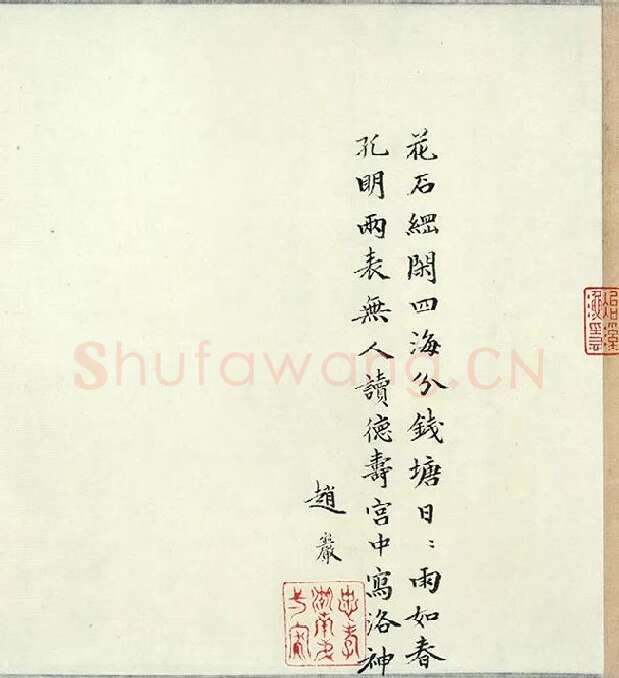 花石綱閑四海分錢塘日〻雨如春
孔明兩表無人讀德壽宮中寫洛神
趙巖
Shufawang.CN
忠孝